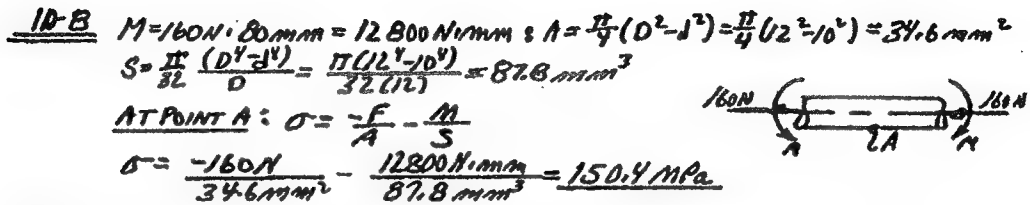 10-8 M=160N·80mm = 12800N·mm ; A = π/4(D²-d²) = π/4(12²-10²) = 34.6mm²
S = π/32 (D⁴-d⁴)/D = π(12⁴-10⁴)/32(12) = 87.8mm³
AT POINT A: σ = -F/A - M/S
160N 160N
M A M
σ = -160N/34.6mm² - 12800N·mm/87.8mm³ = 150.4 MPa